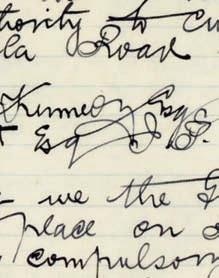 thority to cu
la Road
Kinnedy Esq
t Esq J.P.
t we the G
place on a
compulsom